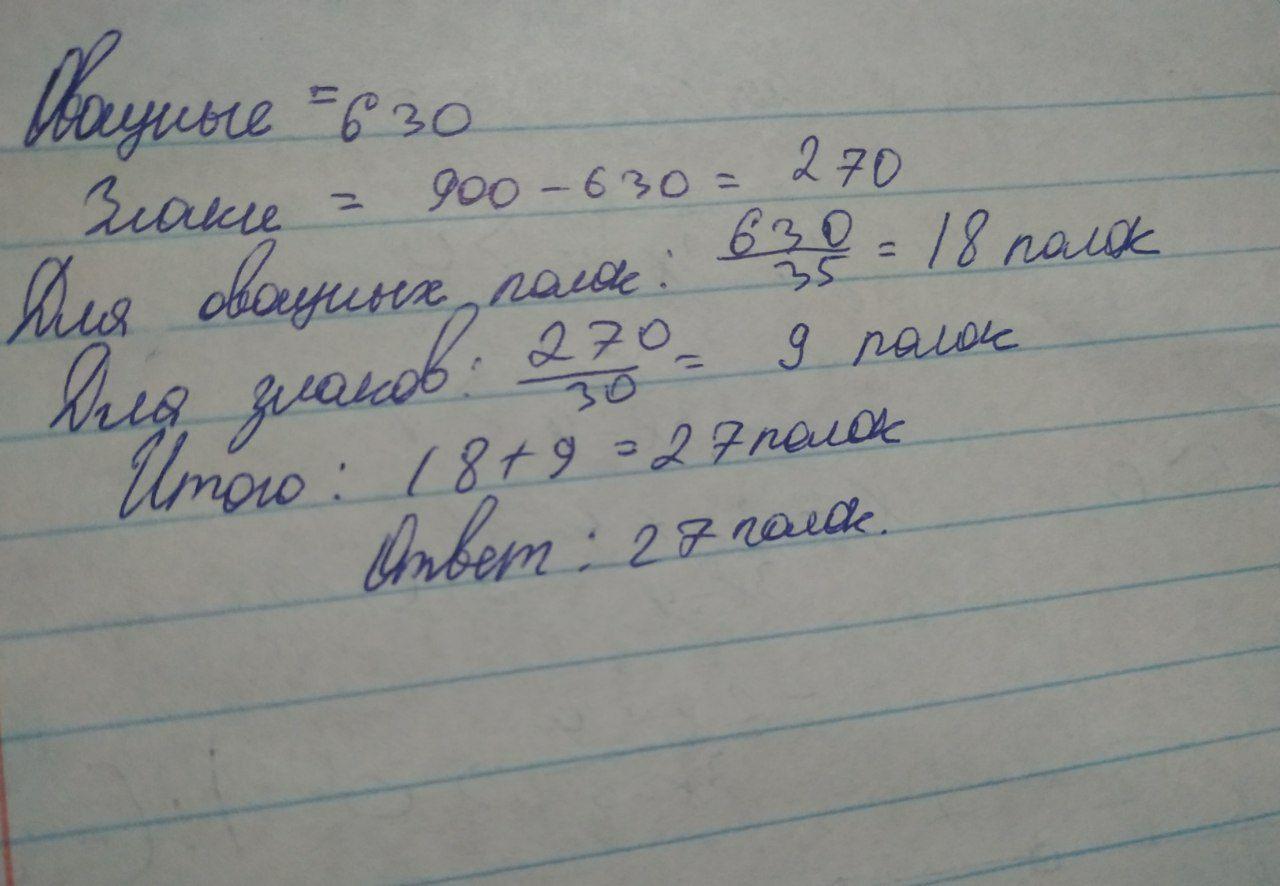 Овощные = 630
Злаки = 900 - 630 = 270
Для овощных полок: 630/35 = 18 полок
Для злаков: 270/30 = 9 полок
Итого: 18 + 9 = 27 полок
Ответ: 27 полок.